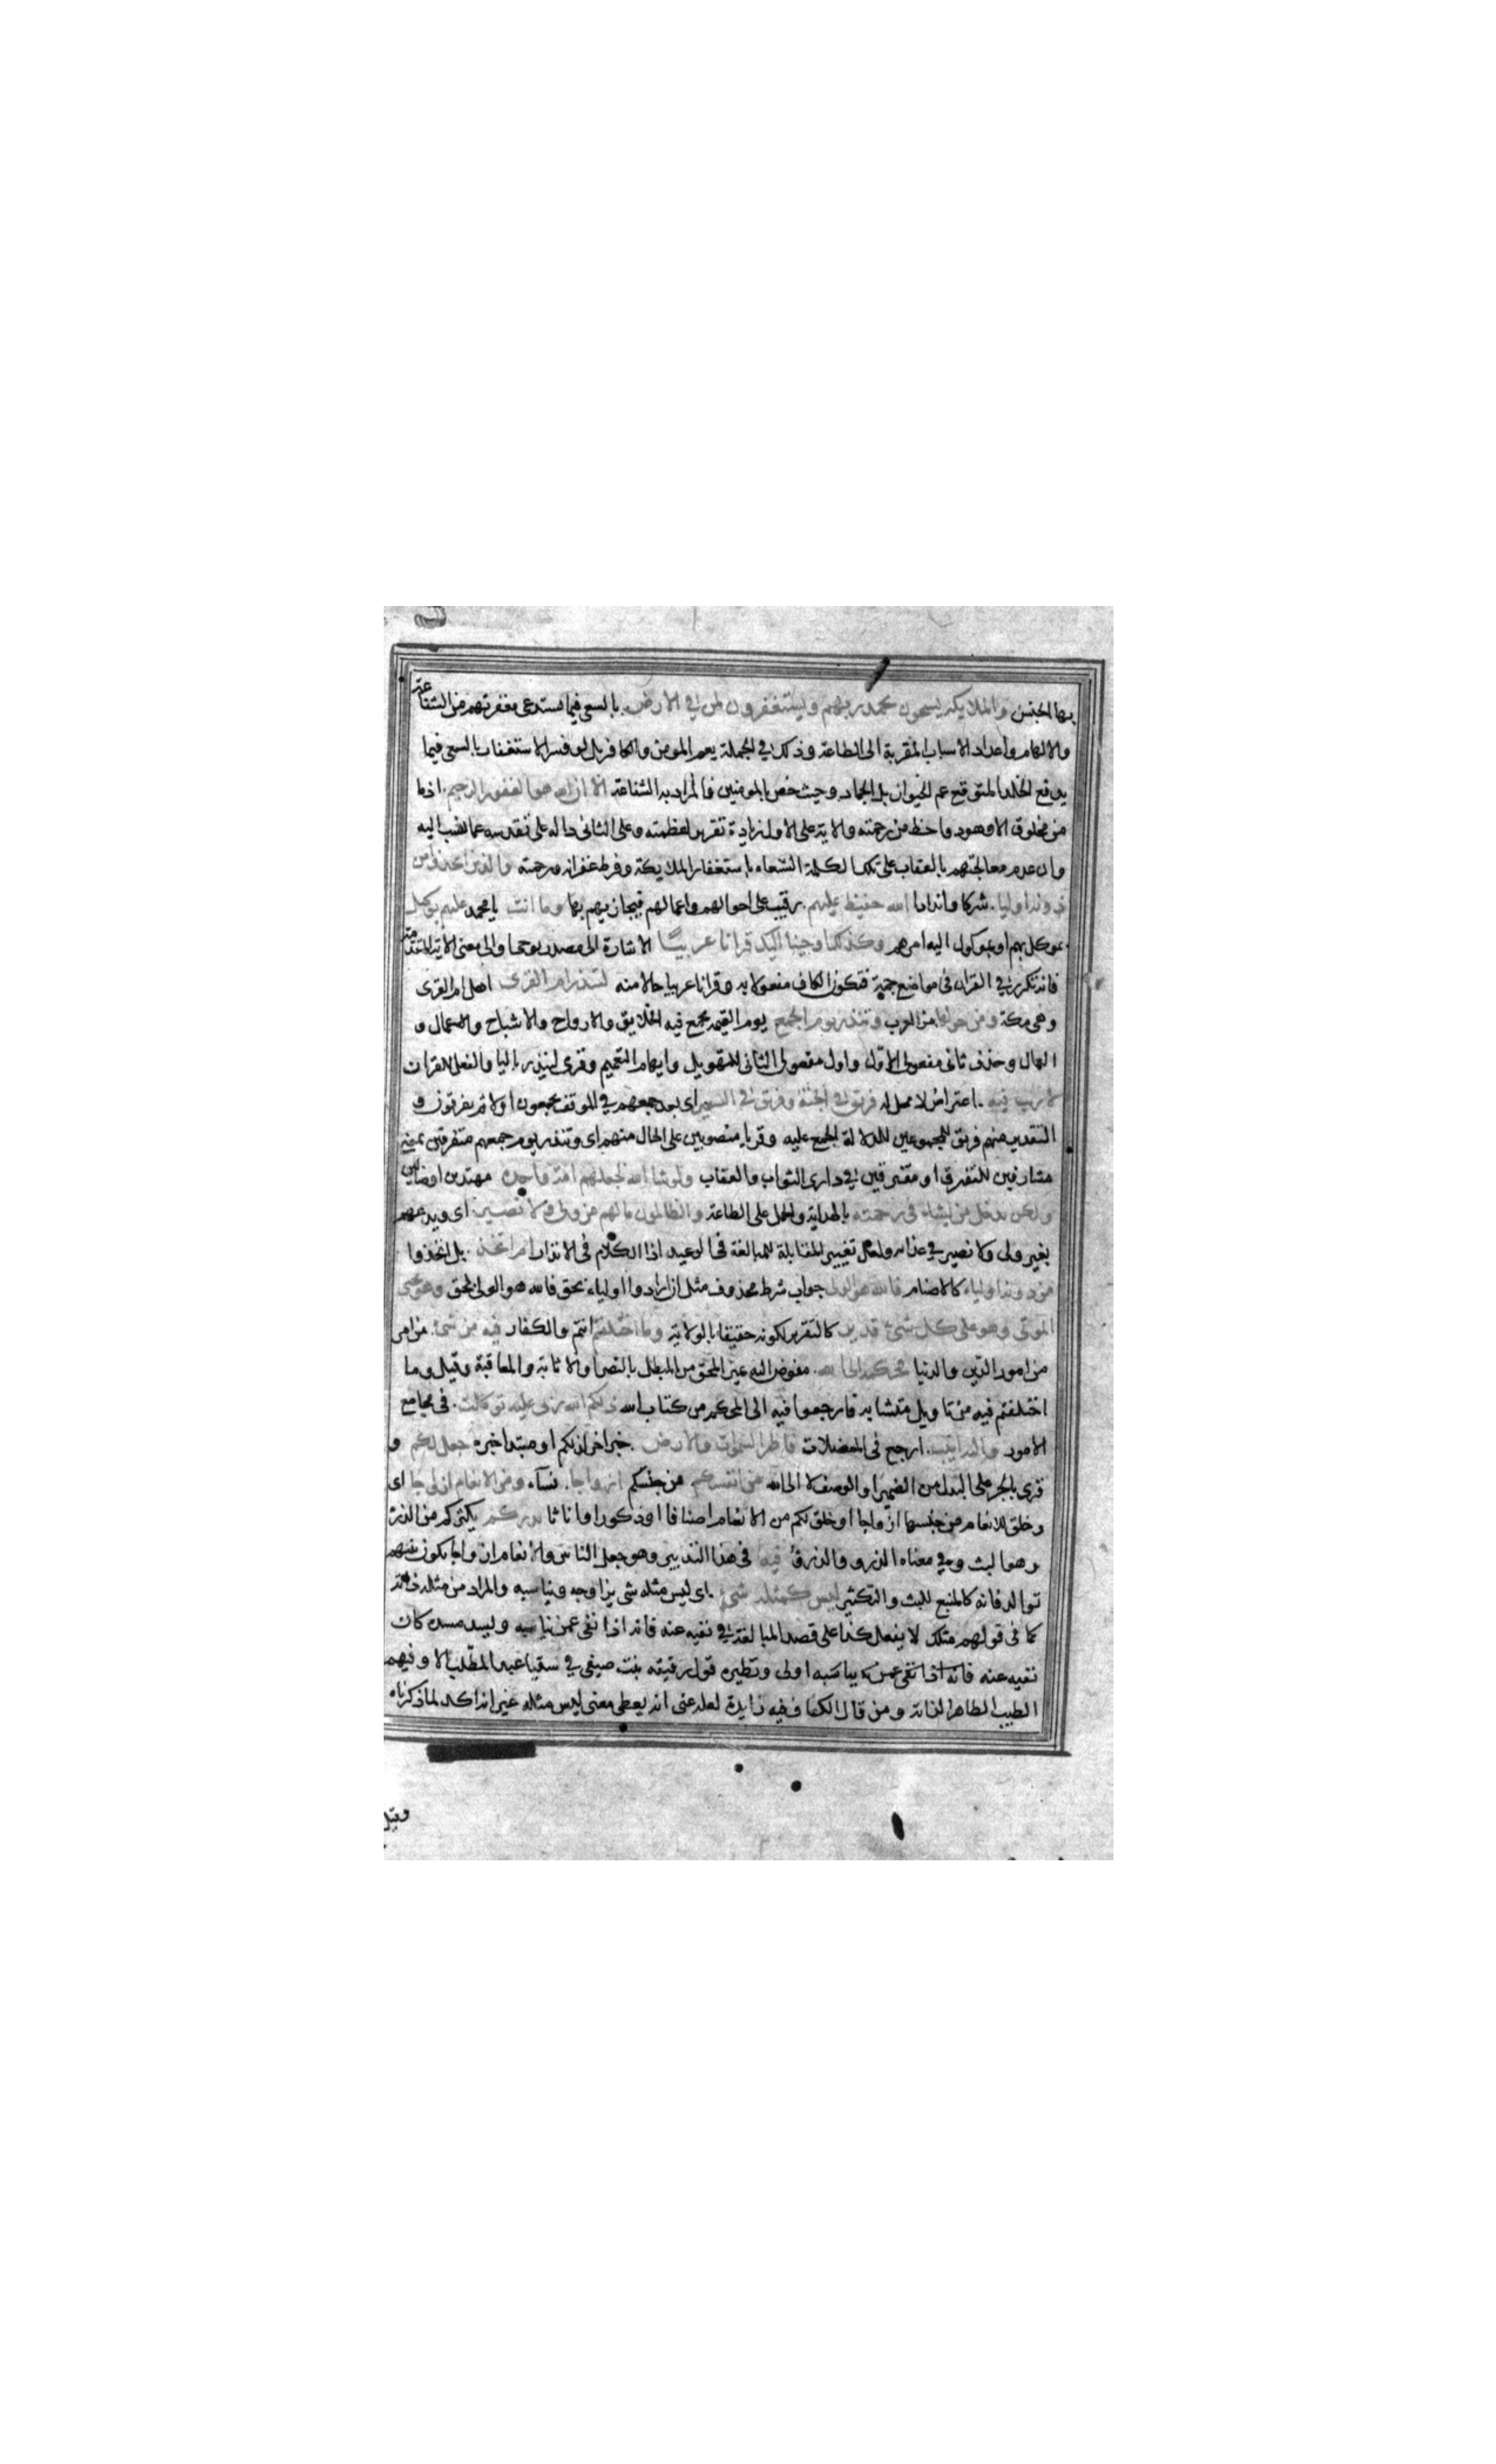 بها الجنس والملايكة يسبحون بحمد ربهم ويستغفرون لمن في الارض. بالسعي فيما يستدعى مغفرتهم من الشفاعة
والالهام واعداد الاسباب المقربة الى الطاعة وذلك في الجملة يعم المومن والكافر بل لو فسر الاستغفار بالسعى فيما
يدفع الخلل المتوقع عم الحيوان بل الجماد وحيث خص بالمومنين فالمراد به الشفاعة الا ان الله هو الغفور الرحيم. اذ ما
من مخلوق الا وهو ذو حظ من رحمته والاية على الاول زيادة تقرير لعظمته وعلى الثانى دالة على تقدسه عما نسب اليه
وان عدم معالجتهم بالعقاب على تلك الكلمة الشنعاء باستغفار الملايكة وفرط غفرانه ورحمته والذين اتخذوا من
دونه اوليا. شركا واندادا الله حفيظ عليهم. رقيب على احوالهم واعمالهم فيجازيهم بها وما انت يا محمد عليهم بوكيل
بموكل بهم او بموكول اليه امرهم وكذلك اوحينا اليك قرانا عربيا الاشارة الى مصدر يوحى او الى معنى الاية المتقدمة
فانه تكرر في القران فى مواضع جمة فتكون الكاف مفعولا به وقرانا عربيا حالا منه لتنذر ام القرى اهل ام القرى
وهى مكة ومن حولها من العرب وتنذر يوم الجمع يوم القيمة يجمع فيه الخلايق والارواح والاشباح والاعمال و
العمال وحذف ثانى مفعولى الاول واول مفعولى الثانى للتهويل وايهام التعميم وقرى لينذر باليا والفعل للقران
لا ريب فيه. اعتراض لا محل له فريق في الجنة وفريق في السعير اى بعد جمعهم في الموقف يجمعون اولا ثم يفرقون و
التقدير منهم فريق للمجموعين لدلالة الجمع عليه وقريا منصوبين على الحال منهم اى وتنذر يوم جمعهم متفرقين بمعنى
مشارفين للتفرق او متفرقين في دارى الثواب والعقاب ولو شا الله لجعلهم امة واحدة مهتدين او ضالين
ولكن يدخل من يشاء فى رحمته بالهداية والحمل على الطاعة والظالمون ما لهم من ولى ولا نصير. اى ويدعهم
بغير ولى ولا نصير في عذابه ولعل تغيير المقابلة للمبالغة فى الوعيد اذ الكلام فى الانذار ام اتخذوا. بل اتخذوا
من دونه اولياء كالاصنام فالله هو الولى جواب شرط محذوف مثل ان ارادوا اولياء بحق فالله هو الولى بالحق وهو يحى
الموتى وهو على كل شئ قدير كالتقرير لكونه حقيقا بالولاية وما اختلفتم انتم والكفار فيه من شئ. من امر
من امور الدين والدنيا فحكمه الى الله. مفوض اليه يميز المحق من المبطل بالنصر او الاثابة والمعاقبة وقيل وما
اختلفتم فيه من تاويل متشابه فارجعوا فيه الى المحكم من كتاب الله ذلكم الله ربى عليه توكلت. فى مجامع
الامور واليه انيب. ارجع فى المعضلات فاطر السموات والارض. خبر اخر لذلكم او مبتدا خبره جعل لكم و
قرى بالجر على البدل من الضمير او الوصف لالى الله من انفسكم من جنسكم ازواجا. نسآء ومن الانعام ازواجا اى
وخلق للانعام من جنسها ازواجا او خلق لكم من الانعام اصنافا او ذكورا واناثا يذرؤكم يكثركم من الذرء
وهو البث وفي معناه الذر و والذرؤ فيه فى هذا التدبير وهو جعل الناس والانعام ازواجا يكون بينهم
توالد فانه كالمنبع للبث والتكثير ليس كمثله شئ. اى ليس مثله شى يزاوجه ويناسبه والمراد من مثله ذاته
كما فى قولهم مثلك لا يفعل كذا على قصد المبالغة في نفيه عنه فانه اذا نفى عمن يناسبه ويسد مسده كان
نفيه عنه فانه اذا نفى عمن يناسبه اولى ونظيره قول رقيقة بنت صيفى في سقيا عبد المطلب الا وفيهم
الطيب الطاهر لذاته ومن قال الكاف فيه زايدة لعله عنى انه يعطى معنى ليس مثله غير انه اكد لما ذكرناه
وقيل